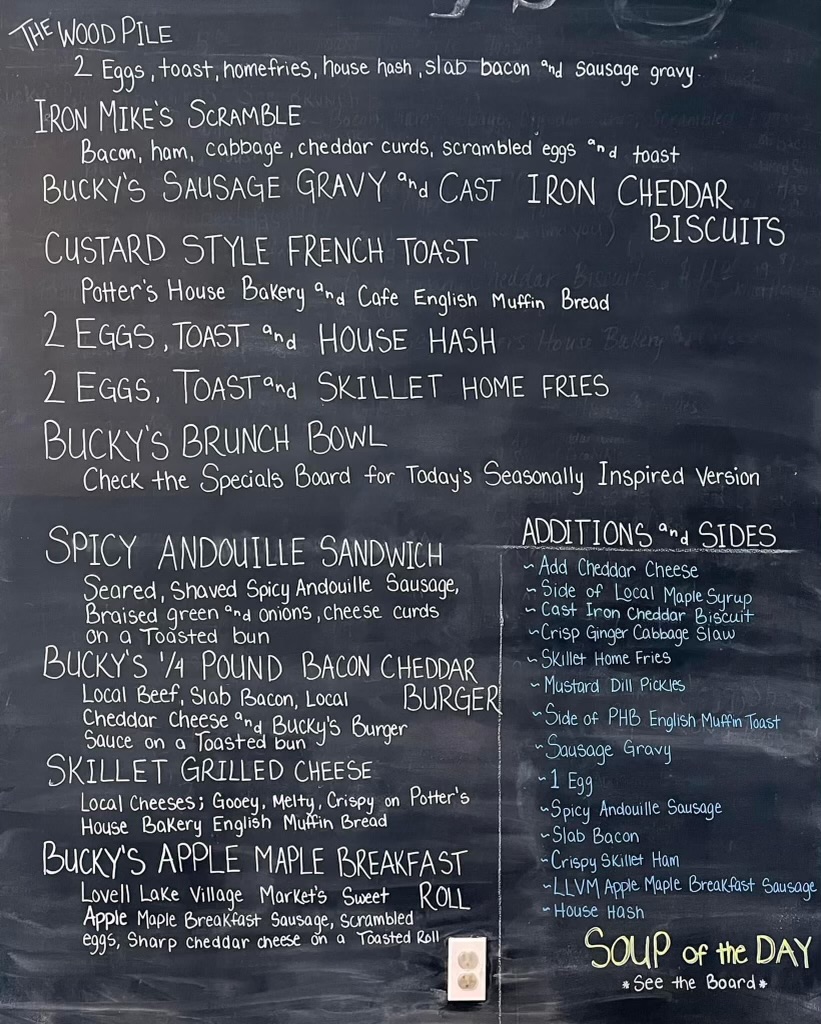 THE WOOD PILE
2 Eggs, toast, homefries, house hash, slab bacon and sausage gravy.
IRON MIKE'S SCRAMBLE
Bacon, ham, cabbage, cheddar curds, scrambled eggs and toast
BUCKY'S SAUSAGE GRAVY and CAST IRON CHEDDAR
BISCUITS
CUSTARD STYLE FRENCH TOAST
Potter's House Bakery and Cafe English Muffin Bread
2 EGGS, TOAST and HOUSE HASH
2 EGGS, TOAST and SKILLET HOME FRIES
BUCKY'S BRUNCH BOWL
Check the Specials Board for Today's Seasonally Inspired Version
SPICY ANDOUILLE SANDWICH
Seared, Shaved Spicy Andouille Sausage,
Braised green and onions, cheese curds
on a Toasted bun
BUCKY'S 1/4 POUND BACON CHEDDAR
BURGER
Local Beef, Slab Bacon, Local
Cheddar Cheese and Bucky's Burger
Sauce on a Toasted bun
SKILLET GRILLED CHEESE
Local Cheeses; Gooey, Melty, Crispy on Potter's
House Bakery English Muffin Bread
BUCKY'S APPLE MAPLE BREAKFAST
ROLL
Lovell Lake Village Market's Sweet
Apple Maple Breakfast Sausage, Scrambled
eggs, Sharp cheddar cheese on a Toasted Roll
ADDITIONS and SIDES
~ Add Cheddar Cheese
~ Side of Local Maple Syrup
~ Cast Iron Cheddar Biscuit
~ Crisp Ginger Cabbage Slaw
~ Skillet Home Fries
~ Mustard Dill Pickles
~ Side of PHB English Muffin Toast
~ Sausage Gravy
~ 1 Egg
~ Spicy Andouille Sausage
~ Slab Bacon
~ Crispy Skillet Ham
~ LLVM Apple Maple Breakfast Sausage
~ House Hash
SOUP of the DAY
*See the Board*